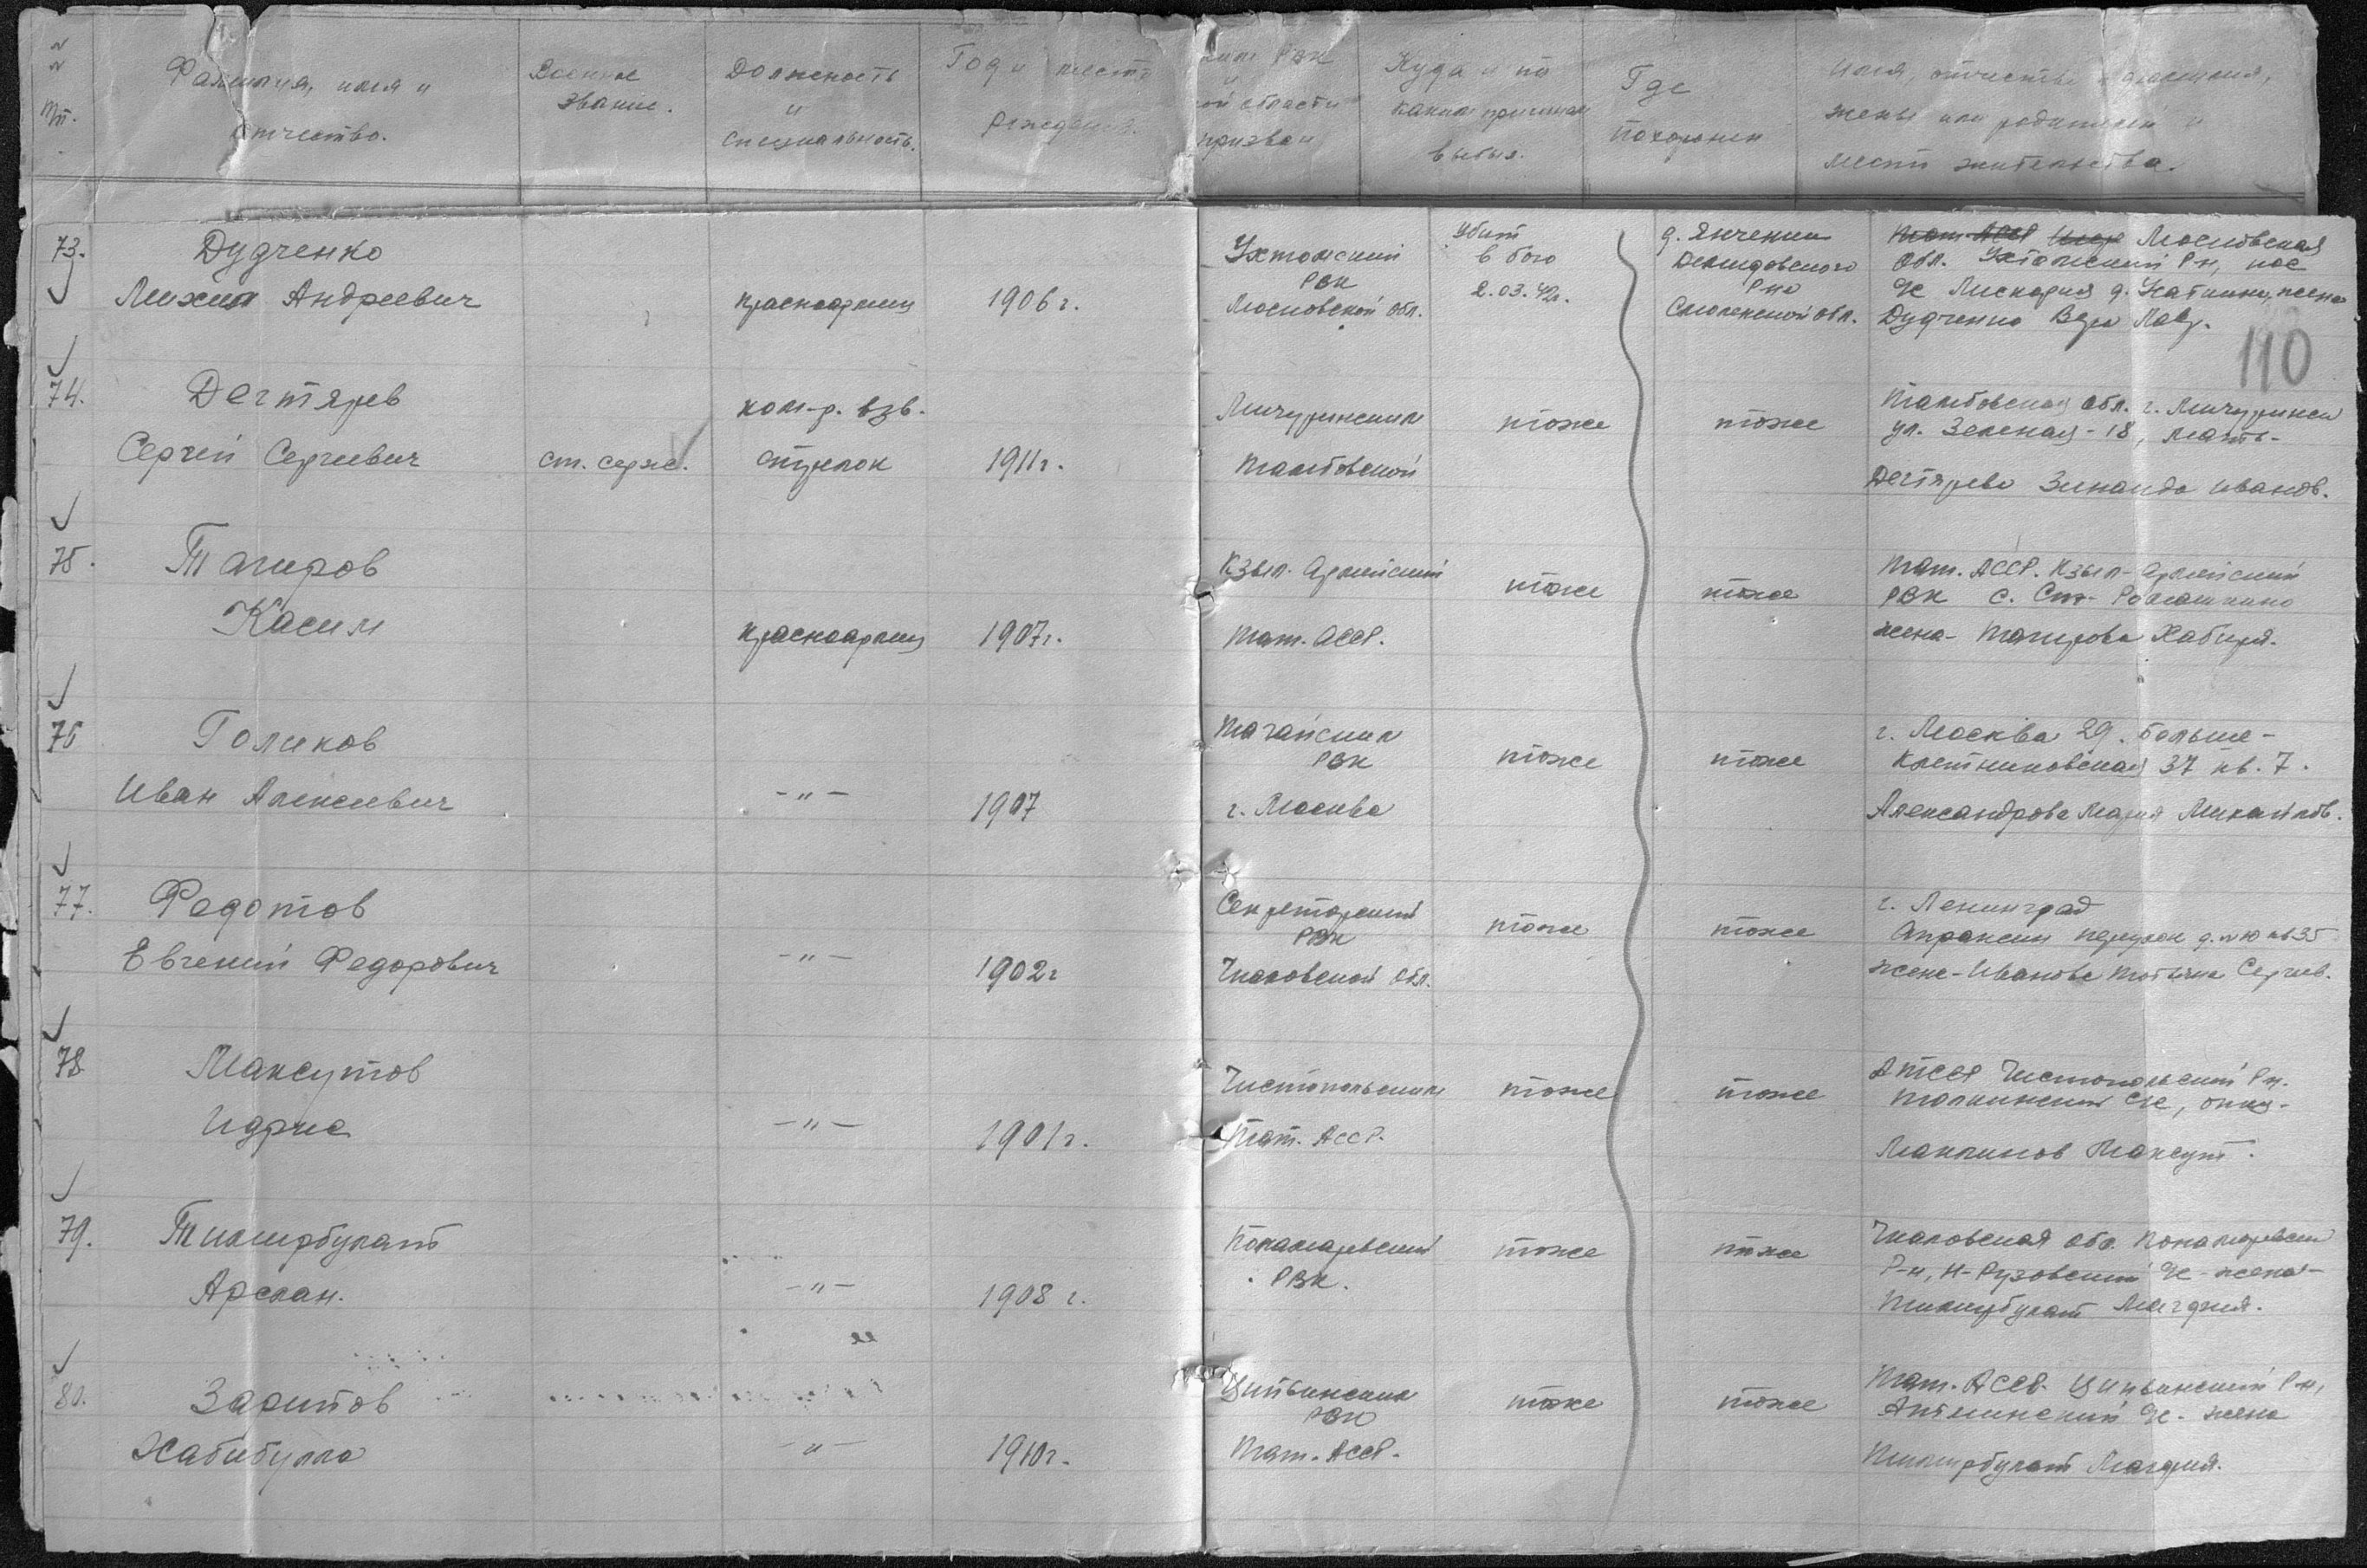 №№ пп.
Фамилия, имя и
отчество.
Военное
звание.
Должность
и
специальность.
Год и место
рождения.
каким РВК
и
кой области
призван
Куда и по
каким причинам
выбыл.
Где
похоронен
Имя, отчество и фамилия,
жены или родителей и
место жительства.
110
73.
Дудченко
Михаил Андреевич
красноармеец
1906 г.
Ухтомский
РВК
Московской обл.
Убит
в бою
2.03.42г.
д. Янченки
Демидовского
р-на
Смоленской обл.
Тат. АССР Московская
обл. Ухтомский р-н, пос
жена
Дудченко Вера Пав.
74.
Дегтярев
Сергей Сергеевич
ст. серж.
ком-р. взв.
стрелок
1911 г.
Мичуринским
Тамбовской
тоже
тоже
Тамбовская обл. г. Мичуринск
ул. Зеленая - 18, мать -
Дегтярева Зинаида Иванов.
75.
Тагиров
Касим
красноармеец
1907 г.
Кзыл-Армейский
Тат. АССР.
тоже
тоже
Тат. АССР. Кзыл-Армейский
РВК с. Ст- Ромашкино
жена - Тагирова Хабиря.
76
Голиков
Иван Алексеевич
-"-
1907
Таганским
РВК
г. Москва
тоже
тоже
г. Москва 29. Больше-
Клетниковская 37 кв. 7.
Александрова Мария Михайлов.
77.
Федотов
Евгений Федорович
-"-
1902 г
Секретарский
РВК
Чкаловской обл.
тоже
тоже
г. Ленинград
Апраксин переулок д. кв 35
жена - Иванова Татьяна Сергеев.
78
Максутов
Идрис
-"-
1901 г.
Чистопольским
Тат. АССР.
тоже
тоже
АТССР Чистопольский Р-н.
Толкишский с/с, отец -
Максутов.
79.
Тимирбулат
Арслан.
-"-
1908 г.
Понамаревский
РВК.
тоже
тоже
Чкаловская обл. Понамаревский
Р-н, Н-Рузовский с/с - жена -
Тимирбулат Магдия.
80.
Заритов
Хабибулла
-"-
1910 г.
РВК
Тат. АССР.
тоже
тоже
Тат. АССР. Р-н,
с/с - жена
Тимирбулат Магдия.